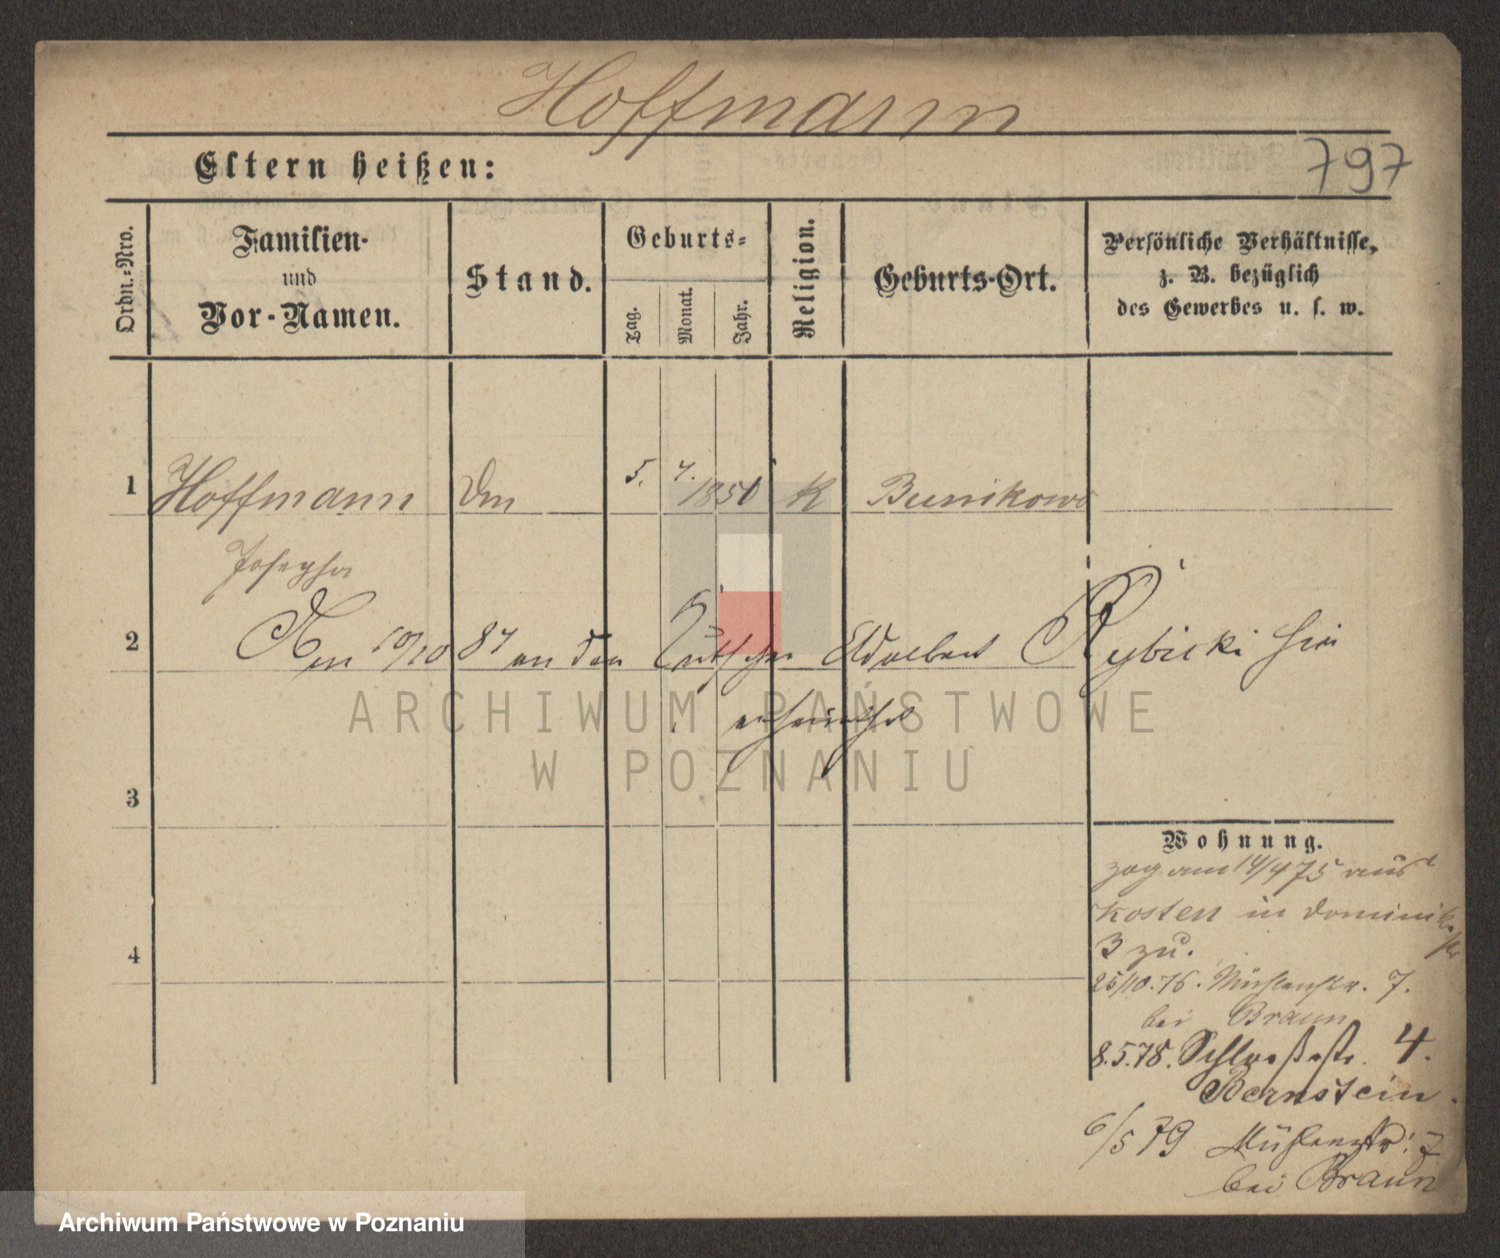 Hoffmann
Eltern heißen:
797
Ordn.-Nro.
Familien-
und
Vor-Namen.
Stand.
Geburts-
Tag.
Monat.
Jahr.
Religion.
Geburts-Ort.
Persönliche Verhältnisse,
z. B. bezüglich
des Gewerbes u. s. w.
1 Hoffmann 5. 7. 1850 K Bunikowo
Josepha
2 Am 10/10 87 an den Kutscher Adalbert Rybicki hier
verheirathet
ARCHIWUM PAŃSTWOWE
W POZNANIU
3
Wohnung.
zog am 14/4 75 aus
Kosten in Dominik.
3 zu.
4
25/10.76. Mühlenstr. 7.
bei Braun
8.5.78. Schloßstr. 4.
Bernstein.
6/5 79 Mühlenstr. 7
bei Braun
Archiwum Państwowe w Poznaniu